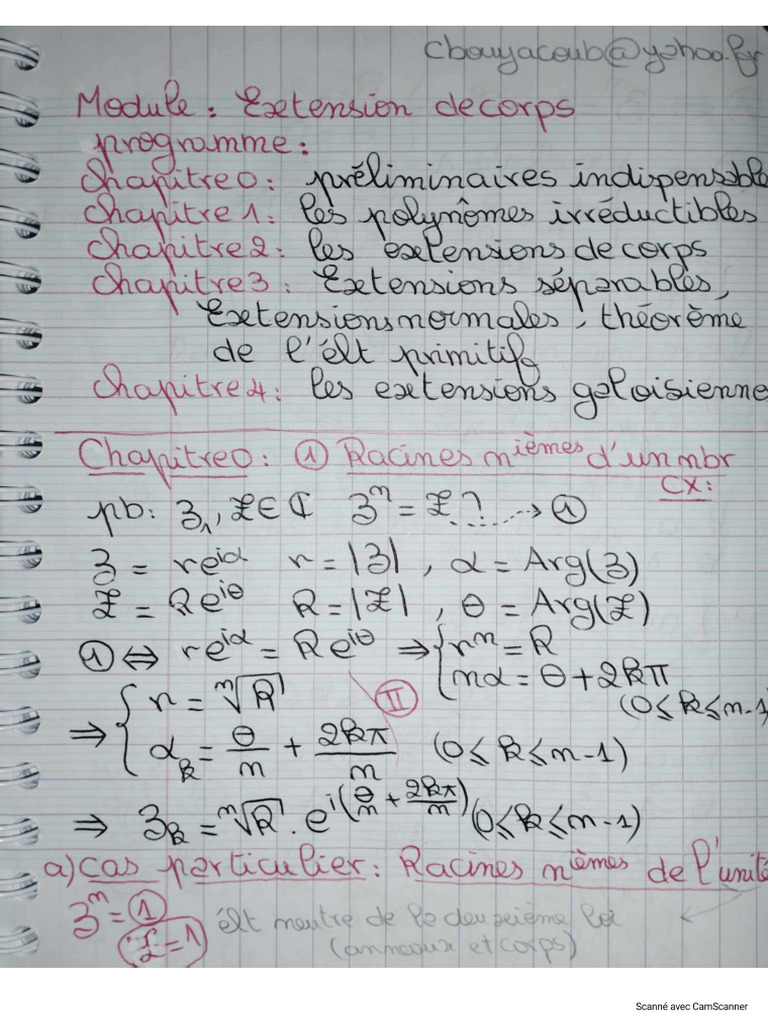 cbouyacoub@yahoo.fr
Module: Extension de corps
programme:
Chapitre 0: préliminaires indispensable
Chapitre 1: les polynômes irréductibles
Chapitre 2: les extensions de corps
Chapitre 3: Extensions séparables,
Extensions normales, théorème
de l'élt primitif
Chapitre 4: les extensions galoisienne
Chapitre 0: ① Racines nièmes d'un nbr
CX:
pb: z, Z ∈ ℂ zⁿ = Z ? ⇢ ①
z = re^{iα} r = |z|, α = Arg(z)
Z = Re^{iθ} R = |Z|, θ = Arg(Z)
① ⇔ re^{iα} = Re^{iθ} ⇒ { rⁿ = R
nα = θ + 2kπ
(0 ≤ k ≤ n-1)
⇒ { r = ⁿ√R Ⅱ
α_k = θ/n + 2kπ/n (0 ≤ k ≤ n-1)
⇒ z_k = ⁿ√R . e^{i(θ/n + 2kπ/n)} (0 ≤ k ≤ n-1)
a) cas particulier: Racines nièmes de l'unité
zⁿ = 1 élt neutre de la deuxième loi
Z = 1 (anneaux et corps)
Scanné avec CamScanner